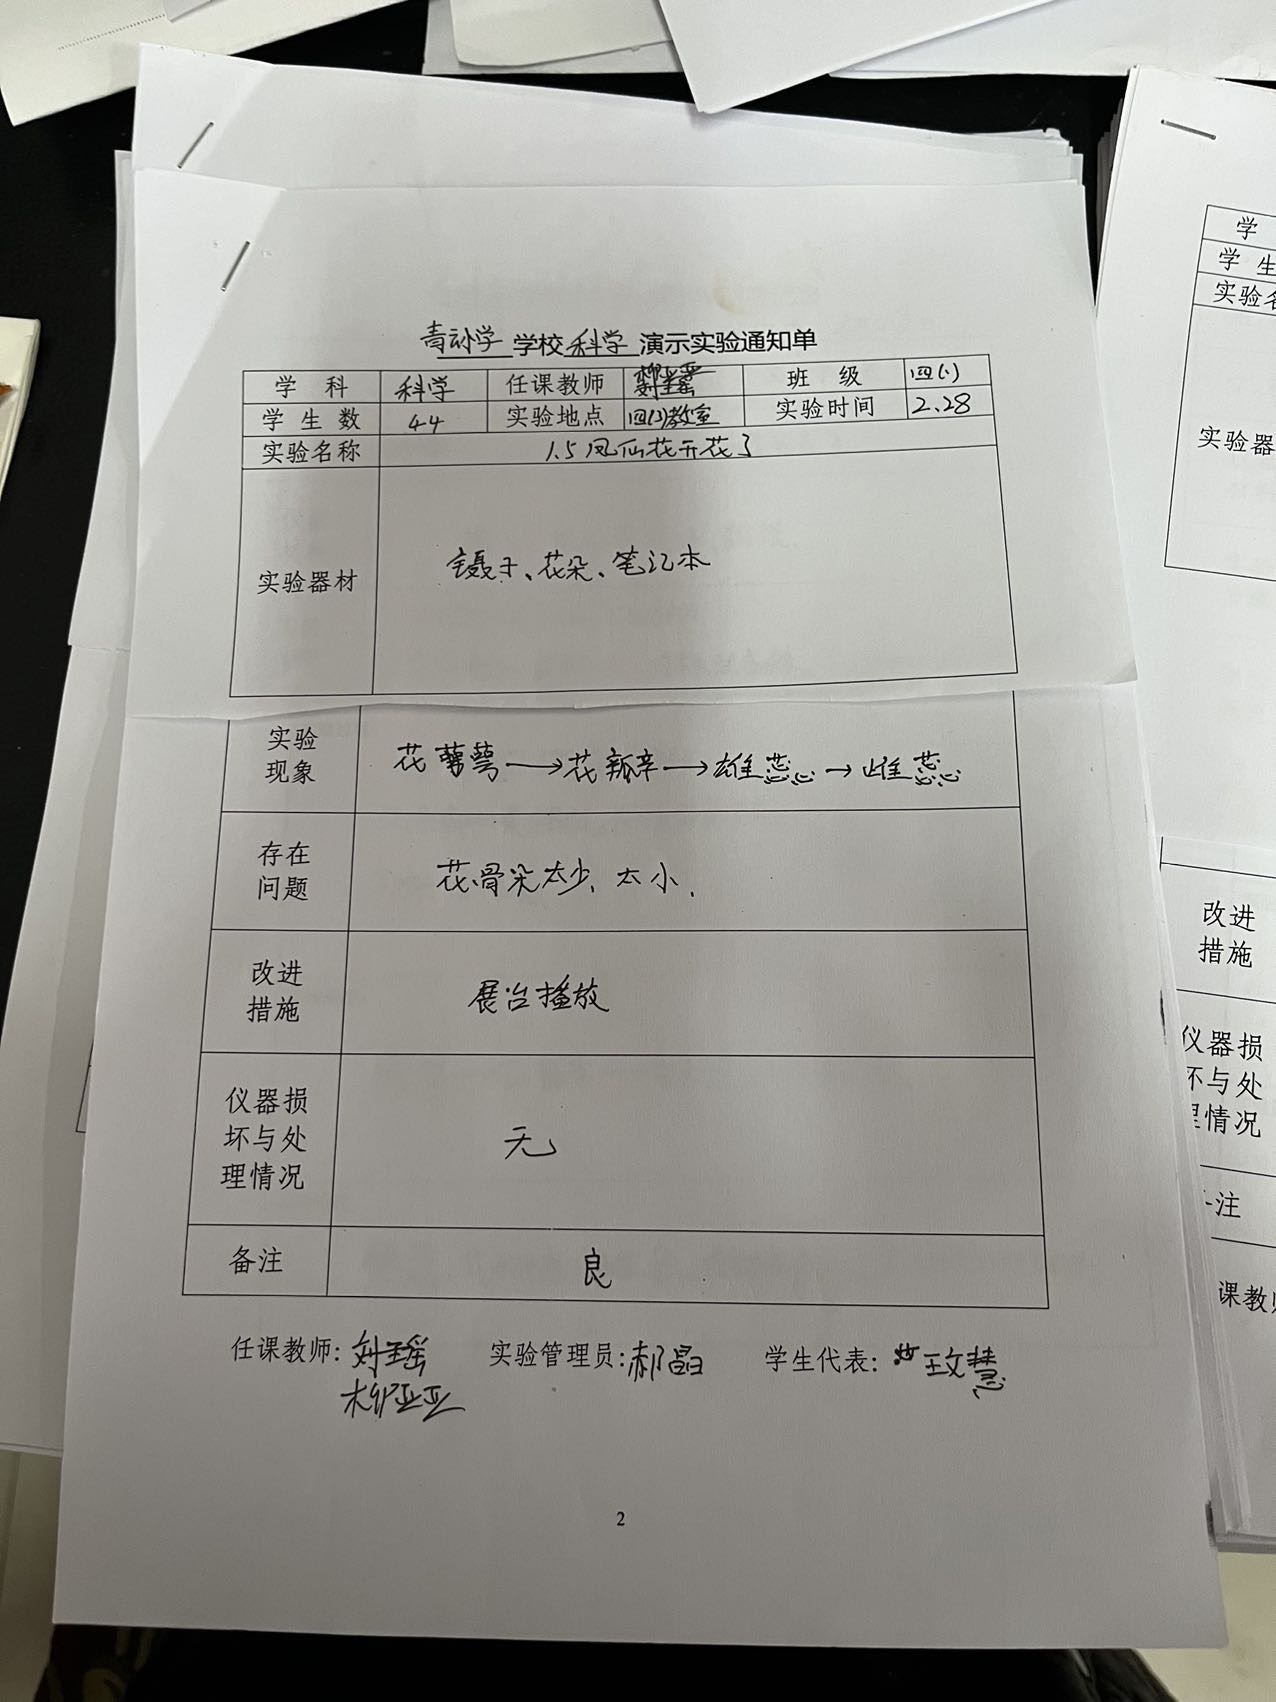 学校科学演示实验通知单
学科 科学 任课教师 班级 四(1)
学生数 44 实验地点 教室 实验时间 2.28
实验名称 1.5凤仙花开花了
实验器材 镊子、花朵、笔记本
实验
现象 花萼→花瓣→雄蕊→雌蕊
存在
问题 花骨朵太少、太小.
改进
措施 展台播放
仪器损
坏与处
理情况 无
备注 良
任课教师: 刘 实验管理员:郝晶 学生代表:
2
学
学生
实验名
实验器
改进
措施
仪器损
坏与处
理情况
注
课教